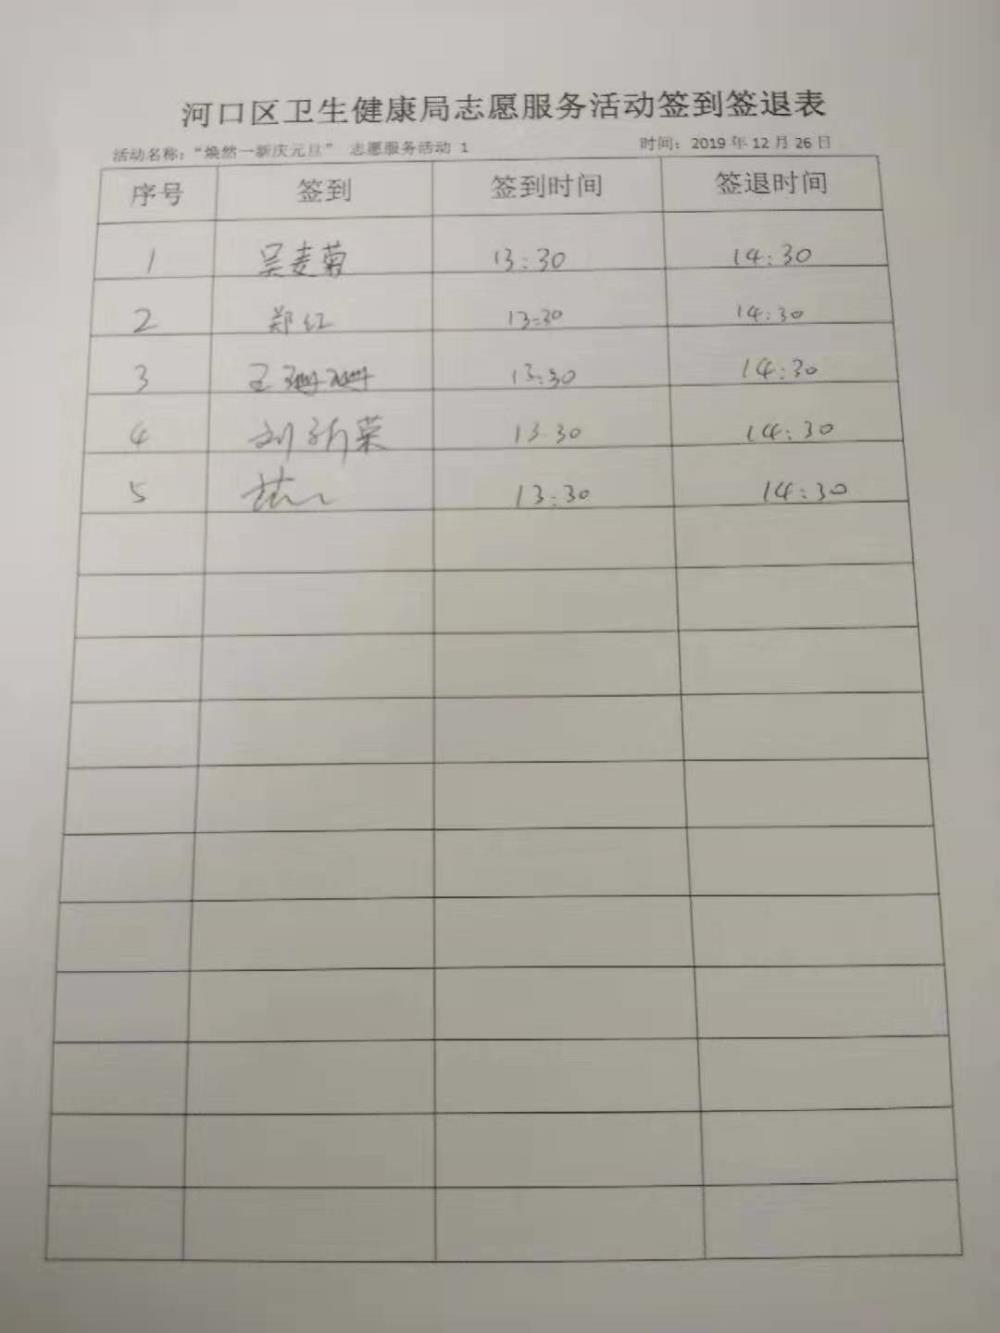 河口区卫生健康局志愿服务活动签到签退表
活动名称：“焕然一新庆元旦” 志愿服务活动 1 时间：2019 年 12 月 26 日
序号 签到 签到时间 签退时间
1 吴麦菊 13:30 14:30
2 郑红 13:30 14:30
3 王珊珊 13:30 14:30
4 刘新荣 13:30 14:30
5 13:30 14:30